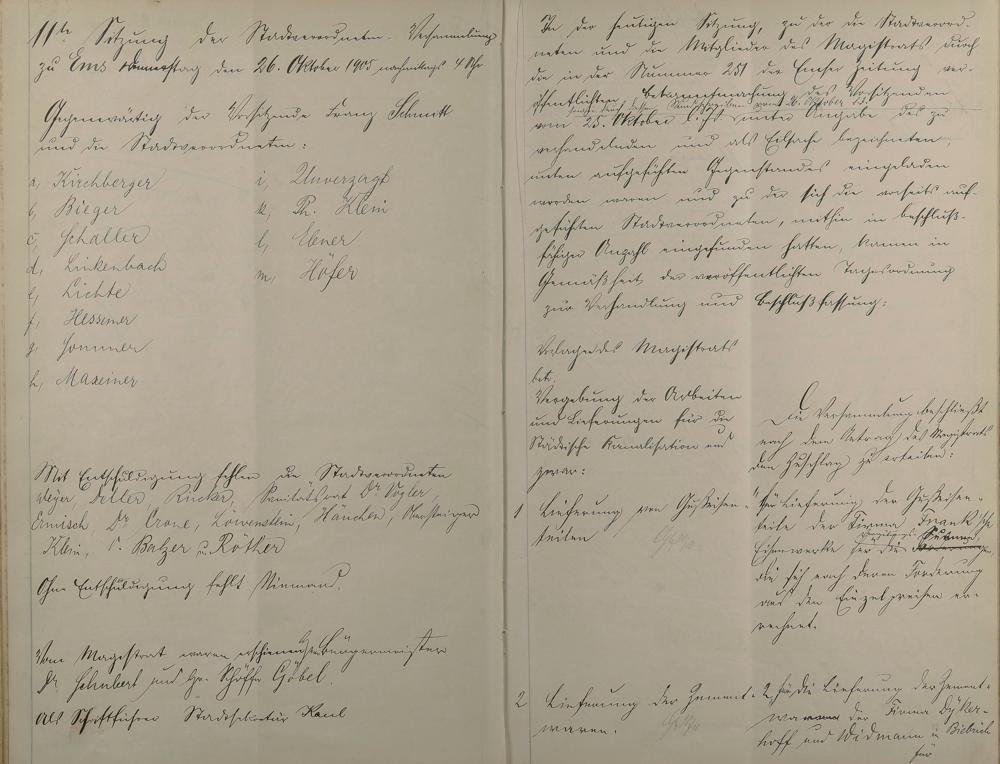 11te Sitzung der Stadtverordneten-Versammlung
zu Ems Donnerstag den 26. Oktober 1905 nachmittags 4 Uhr
Gegenwärtig der Vorsitzende Franz Schmitt
und die Stadtverordneten:
a, Kirchberger
b, Bieger
c, Schaller
d, Linkenbach
e, Lichte
f, Hessemer
g, Sommer
h, Maxeiner
i, Unverzagt
k, Ph. Klein
l, Ebner
m, Höfer
Mit Entschuldigung fehlen die Stadtverordneten
Rücker, Sanitätsrat Dr. Vogler,
Ermisch, Dr. Crone, Löwenstein, Hänchen, Obersteiger
Klein, Balzer u. Röther
Ohne Entschuldigung fehlt Niemand.
Vom Magistrat waren erschienen Bürgermeister
Dr. Schubert und Schöffe Göbel.
Als Schriftführer Stadtsekretär Kaul
In der heutigen Sitzung, zu der die Stadtverord-
neten und die Mitglieder des Magistrats durch
die in der Nummer 251 der Emser Zeitung ver-
öffentlichten Bekanntmachung des Vorsitzenden
vom 26. Oktober
vom 25. Oktober unter Angabe des zu
verhandelnden und als Eilsache bezeichneten,
unten aufgeführten Gegenstandes eingeladen
worden waren und zu der sich die vorseits auf-
geführten Stadtverordneten, mithin in beschluß-
fähiger Anzahl eingefunden hatten, kamen in
Gemäßheit der veröffentlichten Tagesordnung
zur Verhandlung und Beschlußfassung:
Vorlage des Magistrats
betr.
Vergebung der Arbeiten
und Lieferungen für die
Städtische Kanalisation und
zwar:
Die Versammlung beschließt
nach dem Antrag des Magistrats
den Zuschlag zu erteilen:
1 Lieferung von Gußeisen-
teilen
1, für Lieferung der Gußeisen-
teile der Firma Frank'sche
Eisenwerke für die Summe,
die sich nach deren Forderung
aus den Einzelpreisen er-
rechnet.
2 Lieferung der Zement-
waren.
2, für die Lieferung der Zement-
waren der Firma Dyker-
hoff und Widmann in Biebrich
für